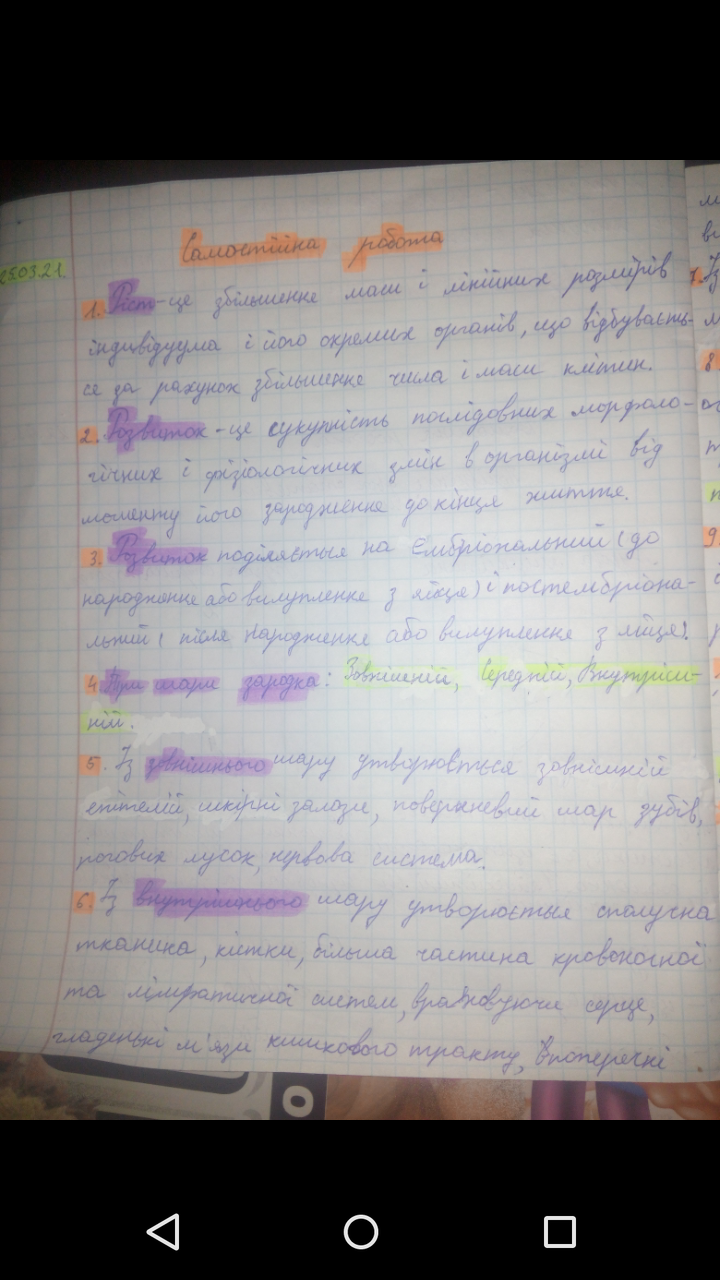 Самостійна робота
25.03.21.
1. Ріст-це збільшення маси і лінійних розмірів
індивідуума і його окремих органів, що відбуваєть-
ся за рахунок збільшення числа і маси клітин.
2. Розвиток-це сукупність послідовних морфоло-
гічних і фізіологічних змін в організмі від
моменту його зародження до кінця життя.
3. Розвиток поділяється на ембріональний (до
народження або вилуплення з яйця) і постембріона-
льний (після народження або вилуплення з яйця).
4 Три шари зародка: Зовнішній, Середній, Внутріш-
ній.
5. Із зовнішнього шару утворюється зовнішній
епітелій, шкірні залози, поверхневий шар зубів,
рогових лусок, нервова система.
6. Із внутрішнього шару утворюється сполучна
тканина, кістки, більша частина кровоносної
та лімфатичної систем, враховуючи серце,
гладенькі м'язи кишкового тракту, впоперечні
8
9.